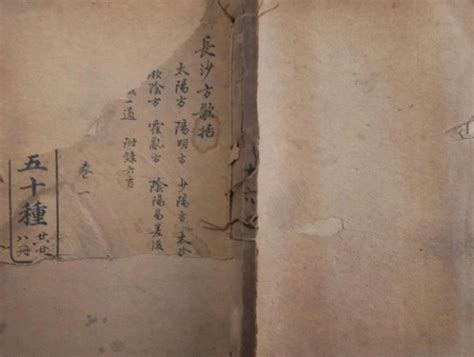 長沙方歌括
太陽方 陽明方 少陽方 太陰
厥陰方 霍亂方 陰陽易差後
附錄六首
卷一
五十種
八冊